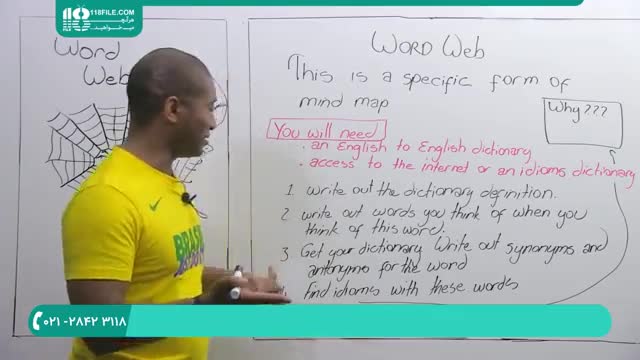 118FILE.COM
هرآنچه
می‌خواهید..
Word
Web
WORD Web
This is a specific form of
mind map
Why???
You will need
. an English to English dictionary
. access to the internet or an idioms dictionary
1. write out the dictionary definition.
2. write out words you think of when you
think of this word.
3. Get your dictionary. Write out synonyms and
antonyms for the word
Find idioms with these words
BRASIL
۰۲۱-۲۸۴۲ ۳۱۱۸